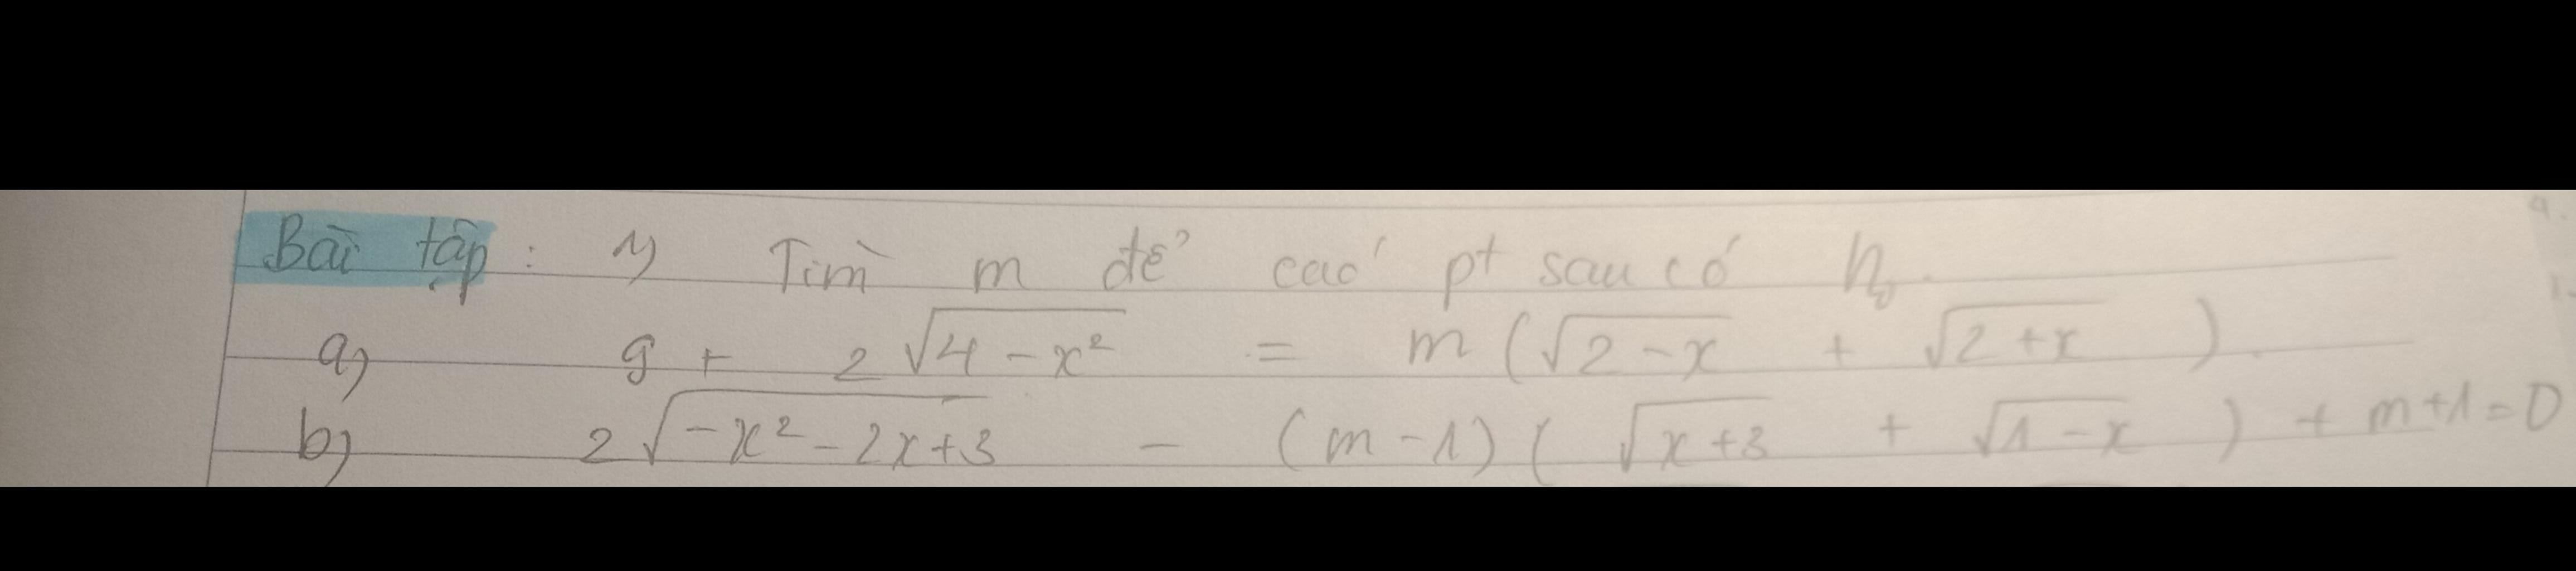 Bài tập : 1) Tìm m để các pt sau có n₀.
a) 9 + 2√(4 - x²) = m (√(2 - x) + √(2 + x)).
b) 2√(-x² - 2x + 3) - (m - 1) ( √(x + 3) + √(1 - x) ) + m + 1 = 0